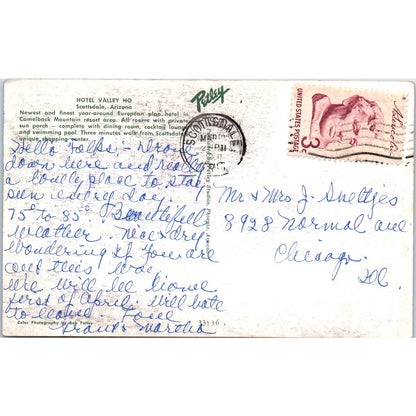 HOTEL VALLEY HO
Scottsdale, Arizona
Newest and finest year-around European plan hotel in
Camelback Mountain resort area. All rooms with private
sun porch — complete with dining room, cocktail lounge
and swimming pool. Three minutes walk from Scottsdale's
unique shopping center.
Hello Folks, - Drove
down here and really
a lovely place to stay
sun every day.
75° to 85°. Beautiful
weather. Nice & dry
wondering if you are
out this way
we will be home
first of April. Will hate
to leave. Love
Frank & Martha
Color Photography by Bob Petley
Petley
SCOTTSDALE
MAR
PM
UNITED STATES POSTAGE
3c
Mr & Mrs J. Sneltjes
8928 Normal ave
Chicago
Ill.
33136